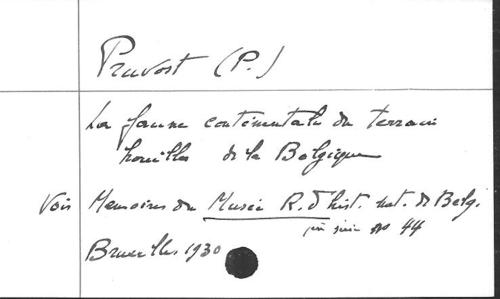 Pruvost (P.)
La faune continentale du terrain
houiller de la Belgique
Voir Memoires du Musée R. d'hist. nat. de Belg.
n° 44
Bruxelles 1930